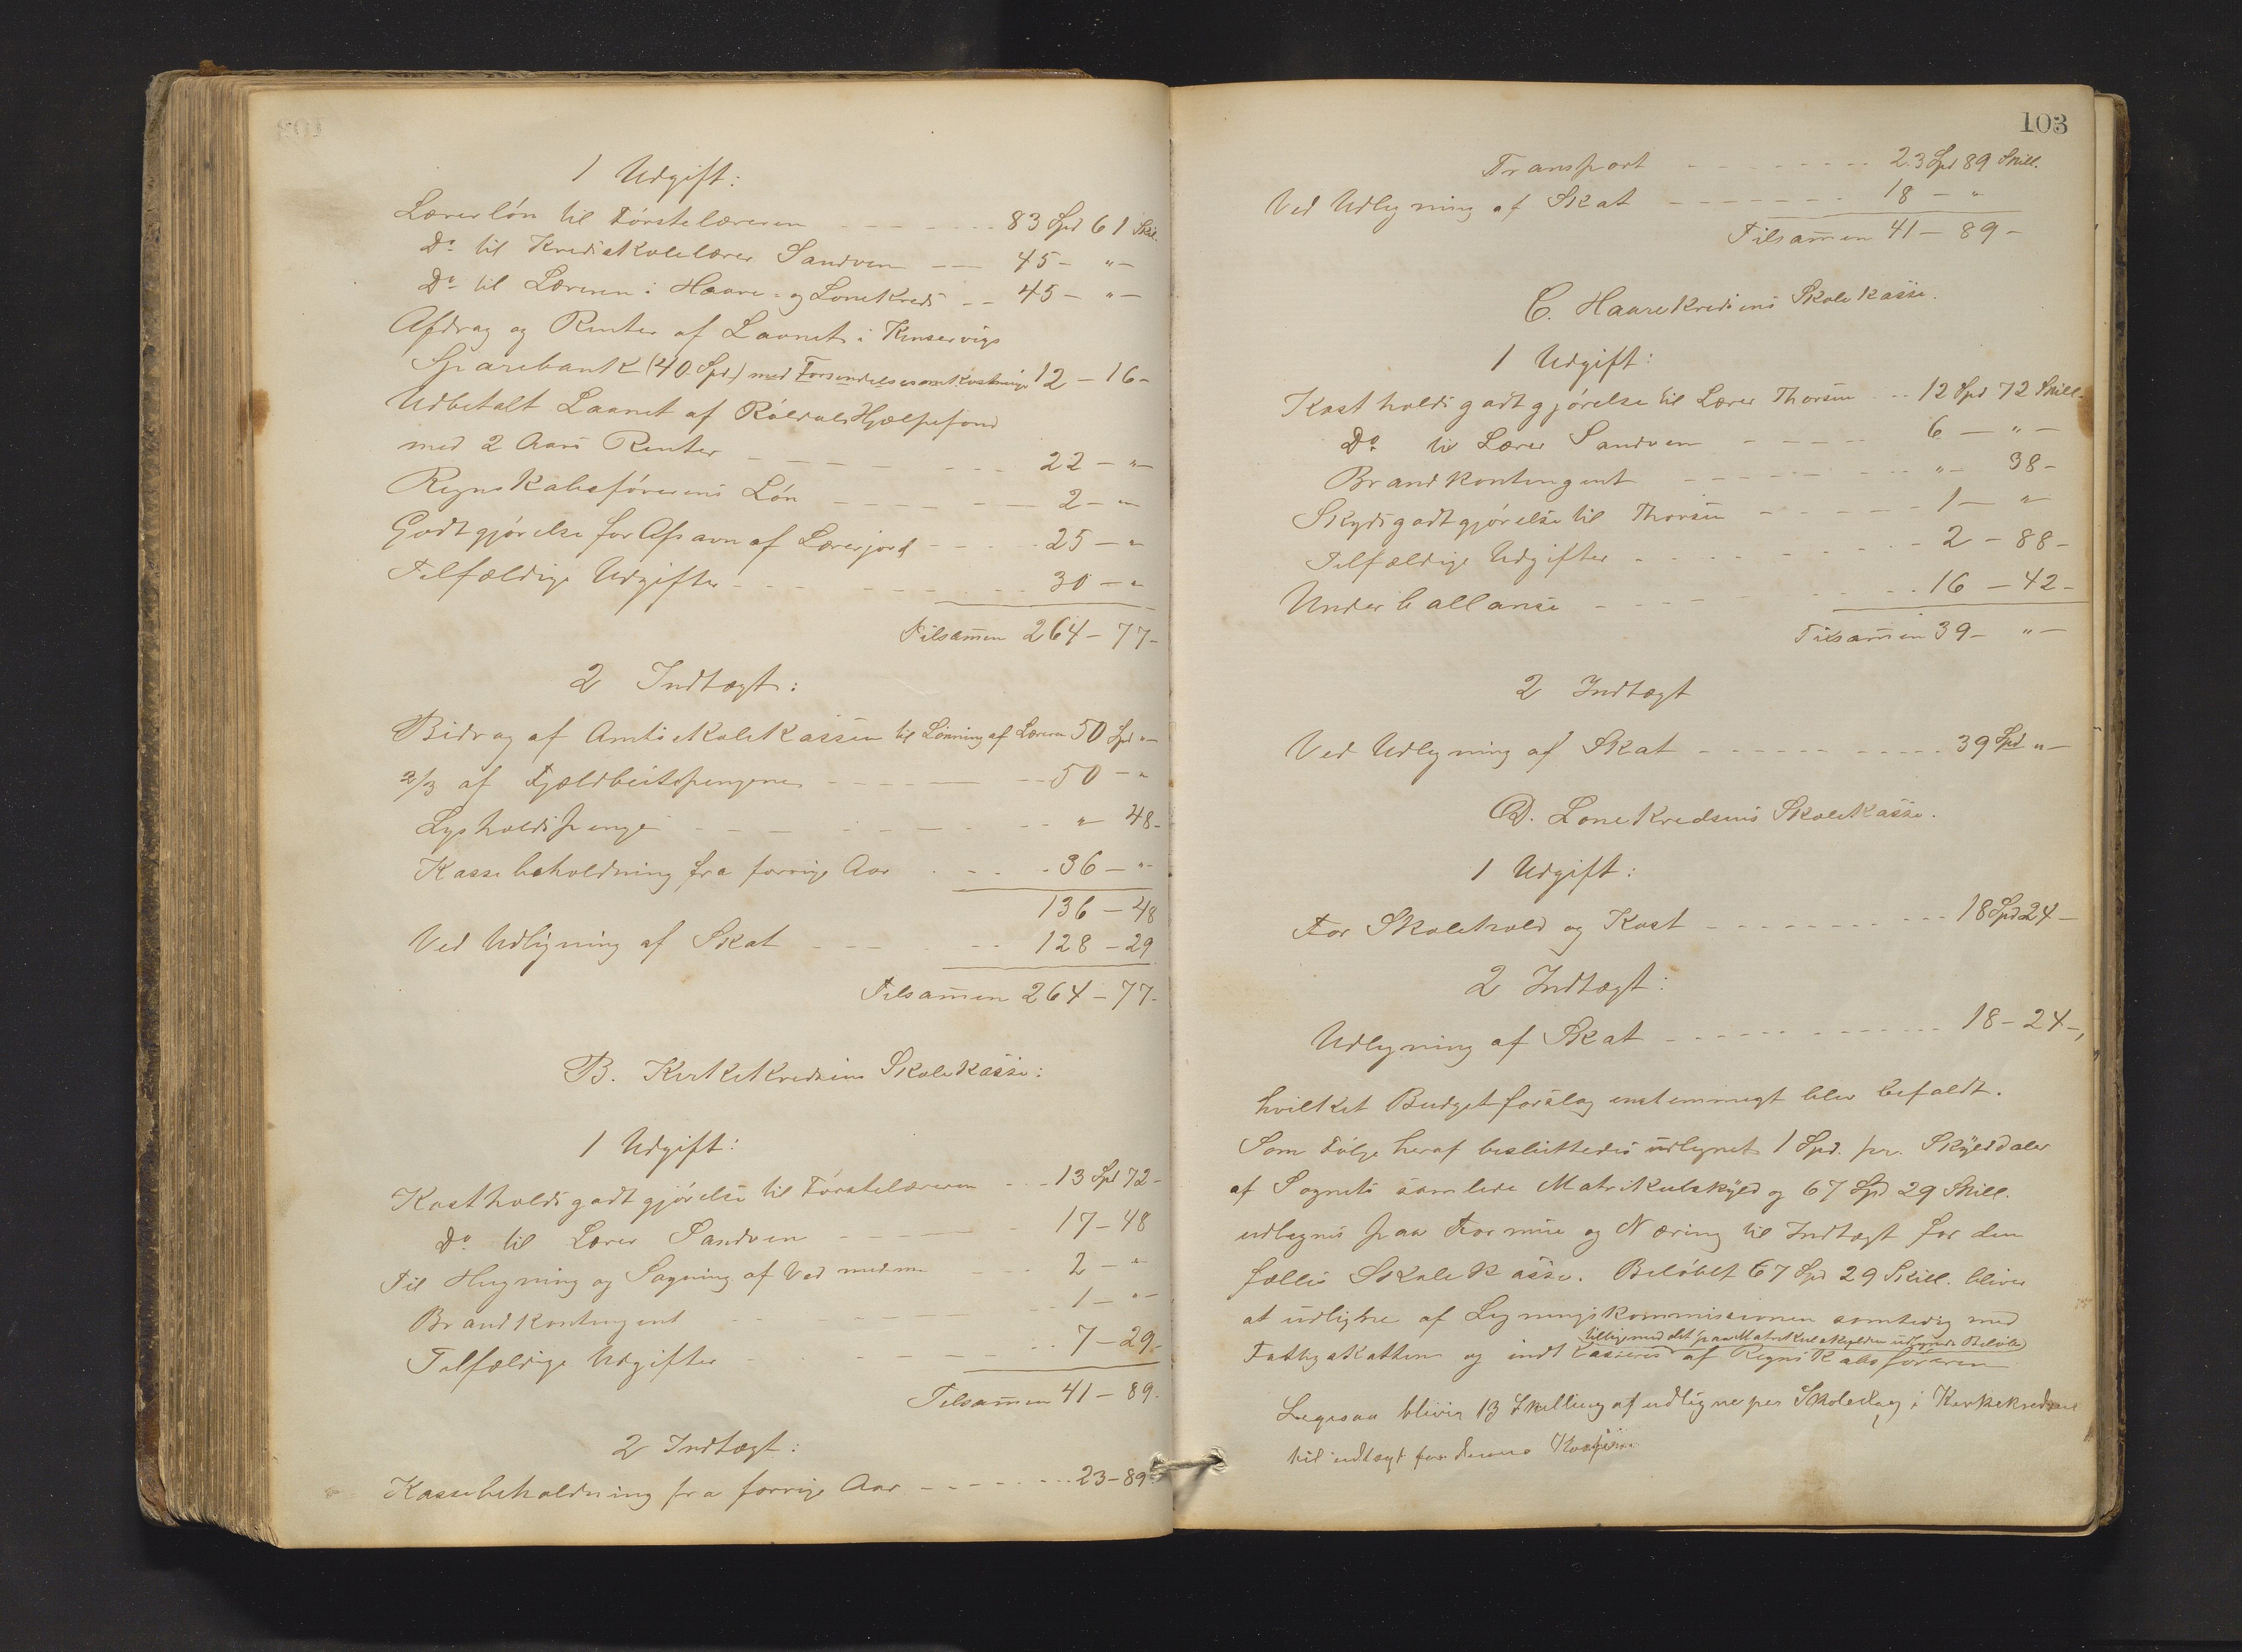 1 Udgift:
Lærerløn til Førstelæreren - - - - - - - 83 Spd 61 Skill.
Do til Kredsskolelærer Sandven - - - 45 - " -
Do til Læreren i Haare- og Lonekreds - - 45 - " -
Afdrag og Renter af Laanet i Kinservigs
Sparebank (40 Spd.) med Forsendelsesomkostninger 12 - 16 -
Udbetalt Laanet af Røldals Hjælpefond
med 2 Aars Renter - - - - - - - - 22 - " -
Regnskabsførerens Løn - - - - - - - 2 - " -
Godtgjørelse for Afsavn af Lærerjord - - - - 25 - "
Tilfældige Udgifter - - - - - - - - - 30 - "
Tilsam̄en 264 - 77 -
2 Indtægt:
Bidrag af Amtsskolekassen til Lønning af Læreren 50 Spd " -
2/3 af Fjeldbeitepengene - - - - - - - 50 - "
Lysholdspenge - - - - - - - - - " 48 -
Kassebeholdning fra forrige Aar - - - - 36 - "
136 - 48
Ved Udligning af Skat - - - - - 128 - 29
Tilsam̄en 264 - 77 -
B. Kirkekredsens Skolekasse:
1 Udgift:
Kostholdsgodtgjørelse til Førstelæreren - - - 13 Spd 72 -
Do til Lærer Sandven - - - - - - 17 - 48
Til Hugning og Sagning af Ved m.m. - - - 2 - "
Brandkontingent - - - - - - - - 1 - " -
Tilfældige Udgifter - - - - - - - - 7 - 29 -
Tilsam̄en 41 - 89 -
2 Indtægt:
Kassebeholdning fra forrige Aar - - - - - - 23 - 89
103
Transport - - - - - - - - - 23 Spd 89 Skill.
Ved Udligning af Skat - - - - - - - 18 - "
Tilsam̄en 41 - 89 -
C. Haarekredsens Skolekasse.
1 Udgift:
Kostholdsgodtgjørelse til Lærer Thorsen - - 12 Spd 72 Skill.
Do til Lærer Sandven - - - - - 6 - " -
Brandkontingent - - - - - - - - " - 38 -
Skydsgodtgjørelse til Thorsen - - - - - - 1 - "
Tilfældige Udgifter - - - - - - - - 2 - 88 -
Underballanse - - - - - - - - 16 - 42 -
Tilsam̄en 39 - " -
2 Indtægt
Ved Udligning af Skat - - - - - - - - - 39 Spd " -
D. Lonekredsens Skolekasse.
1 Udgift:
For Skolehold og Kost - - - - - - - - - - 18 Spd 24 -
2 Indtægt:
Udligning af Skat - - - - - - - - - - 18 - 24 -,
hvilket Budgetforslag enstemmigt blev befaldt.
Som Følge heraf besluttedes udlignet 1 Spd. pr. Skylddaler
af Sognets samlede Matrikulskyld og 67 Spd 29 Skill.
udlignes paa Formue og Næring til Indtægt for den
fælles Skolekasse. Beløbet 67 Spd 29 Skill. bliver
at udligne af Ligningskommissionen samtidig med
tilligemed det paa Matrikulskylden udlignede Beløb
Fattigskatten og indkasseres af Regnskabsføreren
Ligesaa bliver 13 Skilling at udligne per Skoledag i Kirkekredsen
til indtægt for denne Kasse.